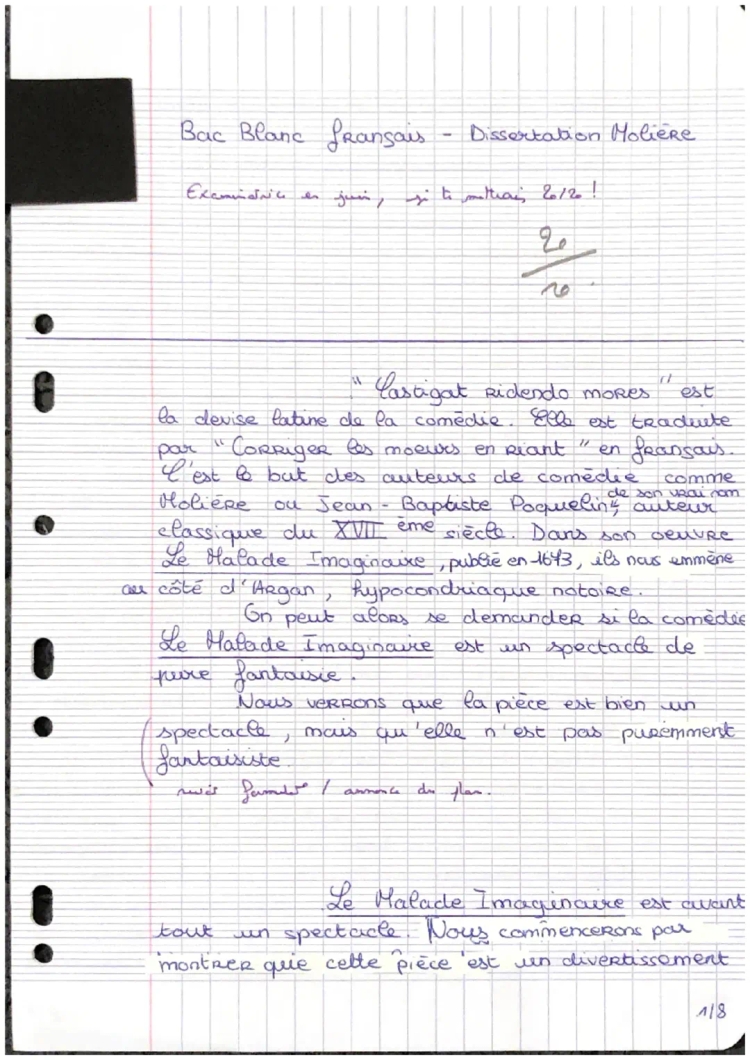 Bac Blanc français - Dissertation Molière
Examinatrice en juin, je te mettrais 20/20 !
20
20
"Castigat Ridendo mores" est
la devise latine de la comédie. Elle est traduite
par "Corriger les moeurs en riant" en français.
C'est le but des auteurs de comédie comme
Molière ou Jean-Baptiste Poquelin de son vrai nom, auteur
classique du XVII ème siècle. Dans son oeuvre
Le Malade Imaginaire, publié en 1673, ils nous emmène
au côté d'Argan, hypocondriaque notoire.
On peut alors se demander si la comédie
Le Malade Imaginaire est un spectacle de
pure fantaisie.
Nous verrons que la pièce est bien un
spectacle, mais qu'elle n'est pas purémment
fantaisiste.
annonce du plan.
Le Malade Imaginaire est avant
tout un spectacle. Nous commencerons par
montrer que cette pièce est un divertissement
1/8